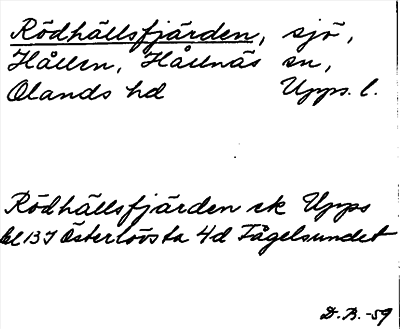 Rödhällsfjärden, sjö,
Hållen, Hållnäs sn,
Olands hd Upps. l.
Rödhällsfjärden ek Upps
bl 13 I Österlövsta 4d Fågelsundet
D.B.-59